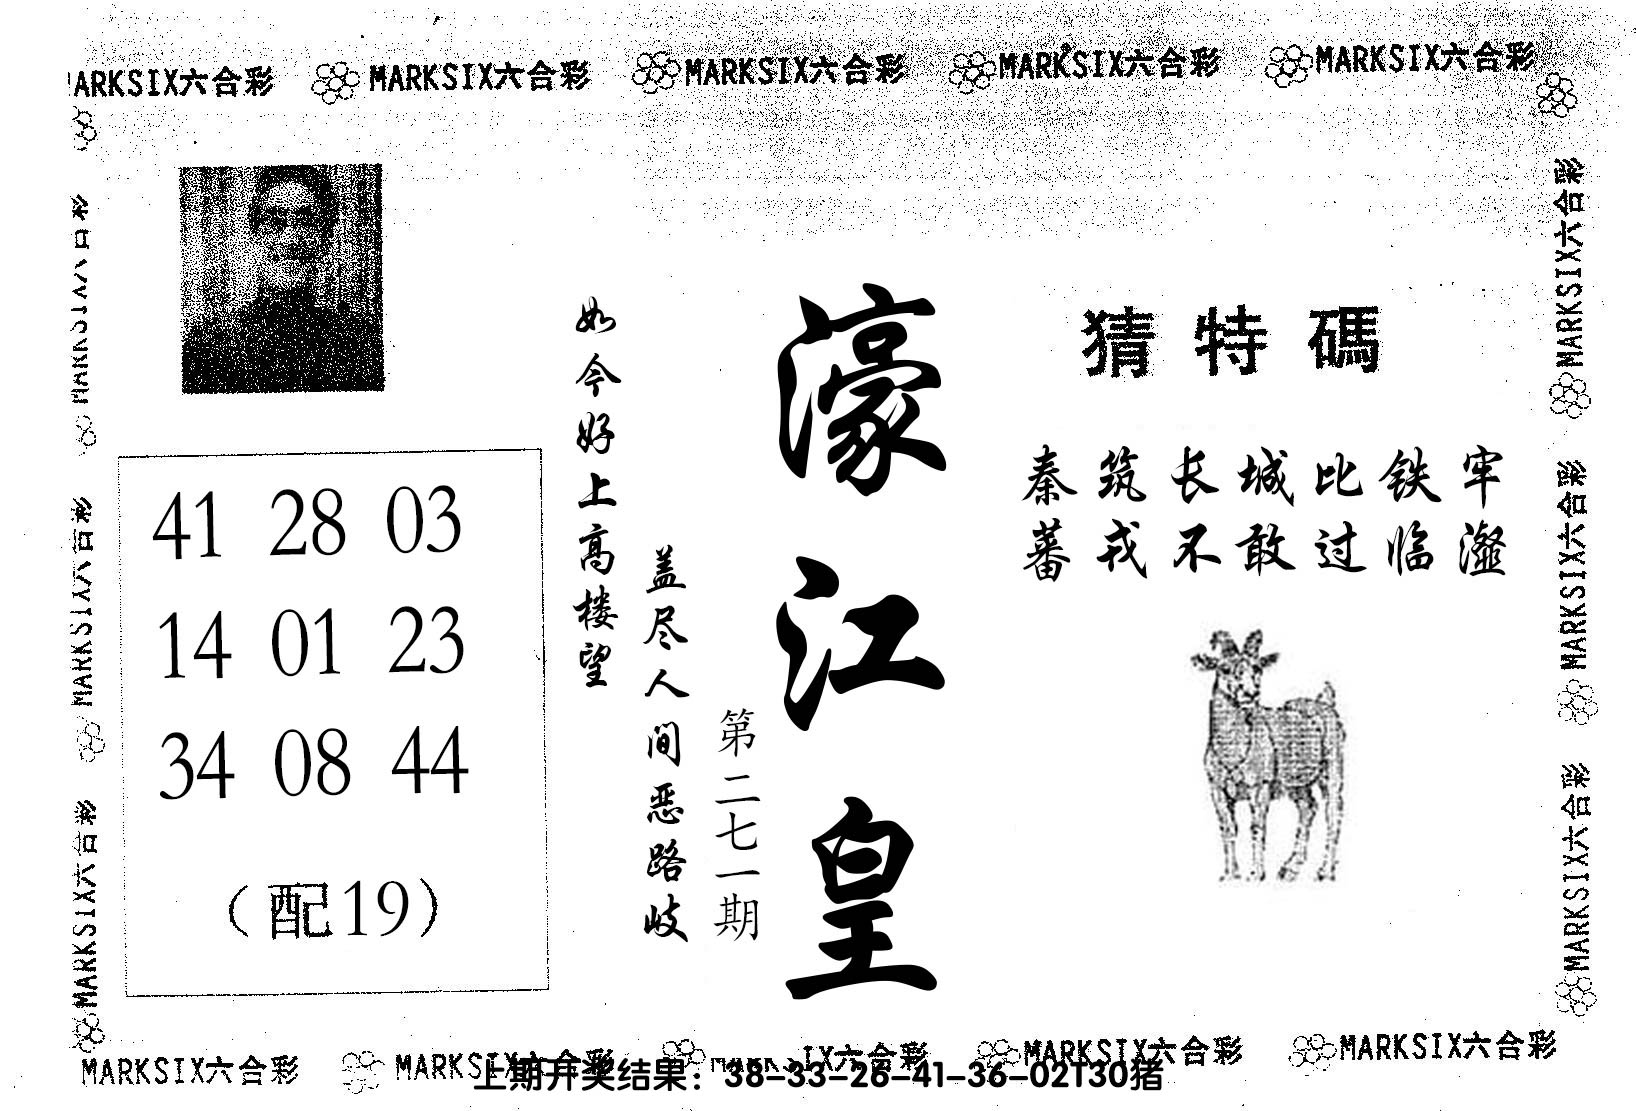 MARKSIX六合彩 MARKSIX六合彩 MARKSIX六合彩 MARKSIX六合彩 MARKSIX六合彩
猜特碼
秦筑长城比铁牢
蕃戎不敢过临
濠江皇
第二七一期
如今好上高楼望
盖尽人间恶路岐
41 28 03
14 01 23
34 08 44
（配19）
MARKSIX六合彩
MARKSIX六合彩
MARKSIX六合彩
MARKSIX六合彩
MARKSIX六合彩
MARKSIX六合彩
MARKSIX六合彩 MARKSIX六合彩 六合彩 MARKSIX六合彩 MARKSIX六合彩
上期开奖结果：38-33-26-41-36-02T30猪